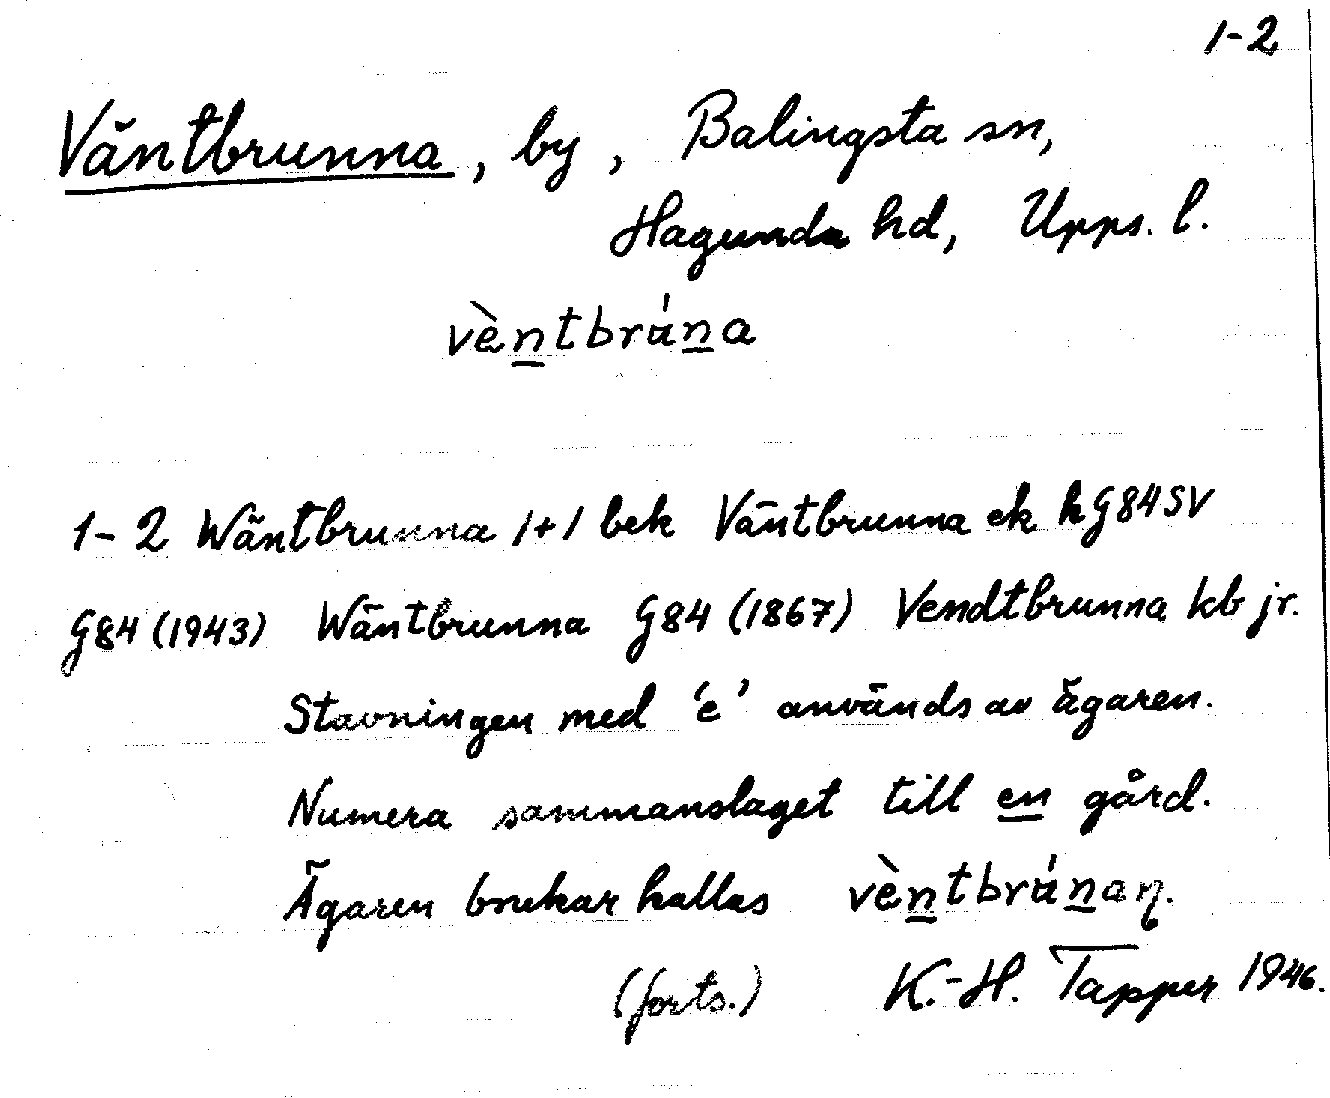 1-2
Väntbrunna, by, Balingsta sn,
Hagunda hd, Upps. l.
vèntbrúna
1-2 Wäntbrunna 1+1 bek Väntbrunna ek h G84SV
G84 (1943) Wäntbrunna G84 (1867) Vendtbrunna kb jr.
Stavningen med 'e' används av ägaren.
Numera sammanslaget till en gård.
Ägaren brukar kallas vèntbrúnaŋ.
(forts.) K.-H. Tapper 1946.